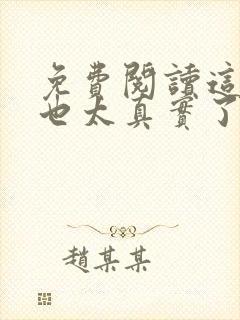 免費閱讀這
也太真實了
趙某某